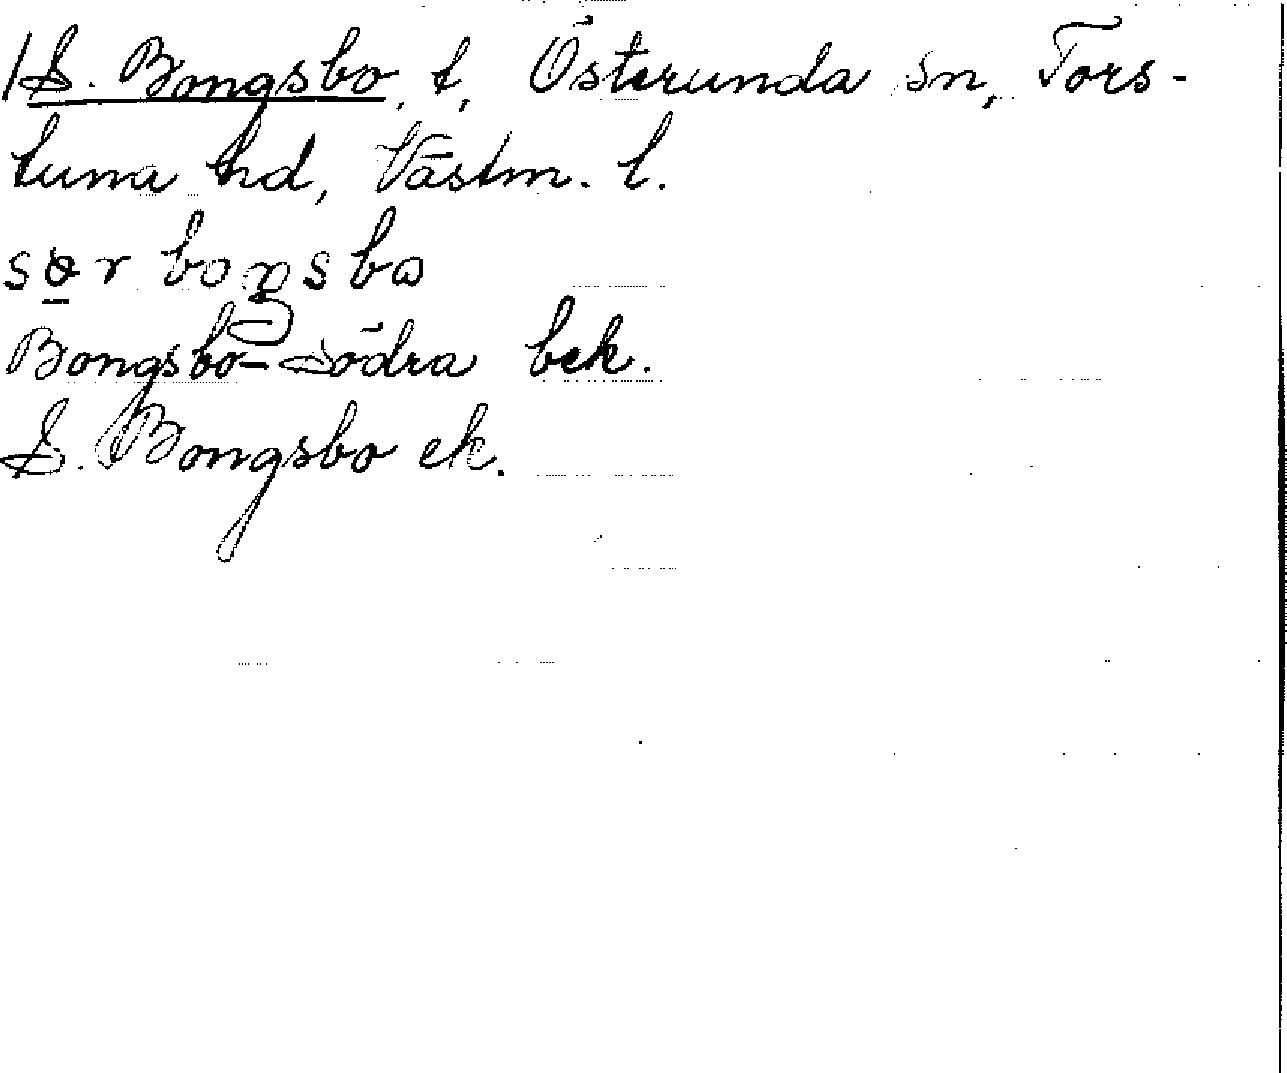 /S. Bongsbo, t, Österunda sn, Tors-
tuna hd, Västm. l.
sɵ̱r boŋsbɷ
Bongsbo-Södra bek.
S. Bongsbo ek.